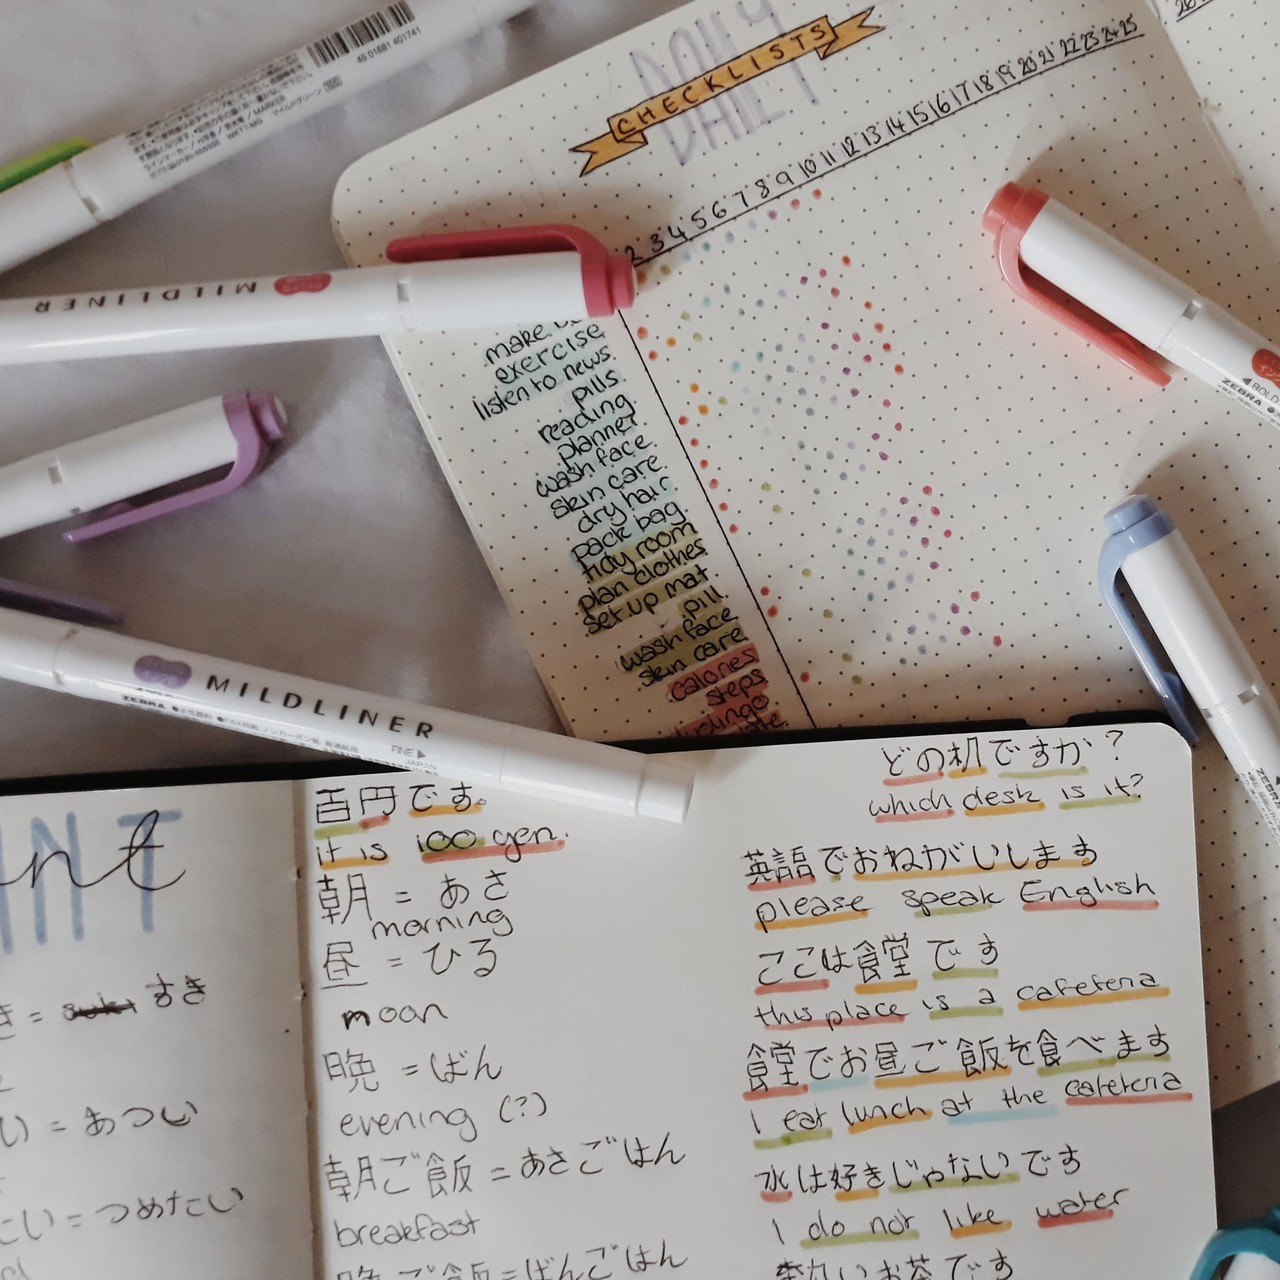 4901681 401741
MILDLINER
DAILY
CHECKLISTS
2 3 4 5 6 7 8 9 10 11 12 13 14 15 16 17 18 19 20 21 22 23 24 25
make
exercise
listen to news
pills
reading
planner
wash face
skin care
dry hair
pack bag
tidy room
plan clothes
set up mat
pill
wash face
skin care
calories
steps
ZEBRA
MILDLINER
ZEBRA
FINE
JAPAN
き = すき
い) = あつい
たい = つめたい
百円です。
it is 100 yen.
朝 = あさ
morning
昼 = ひる
noon
晩 = ばん
evening (?)
朝ご飯 = あさごはん
breakfast
晩ご飯 = ばんごはん
どの机ですか?
which desk is it?
英語でおねがいします
please speak English
ここは食堂です
this place is a cafeteria
食堂でお昼ご飯を食べます
I eat lunch at the cafeteria
水は好きじゃないです
I do not like water
お茶です